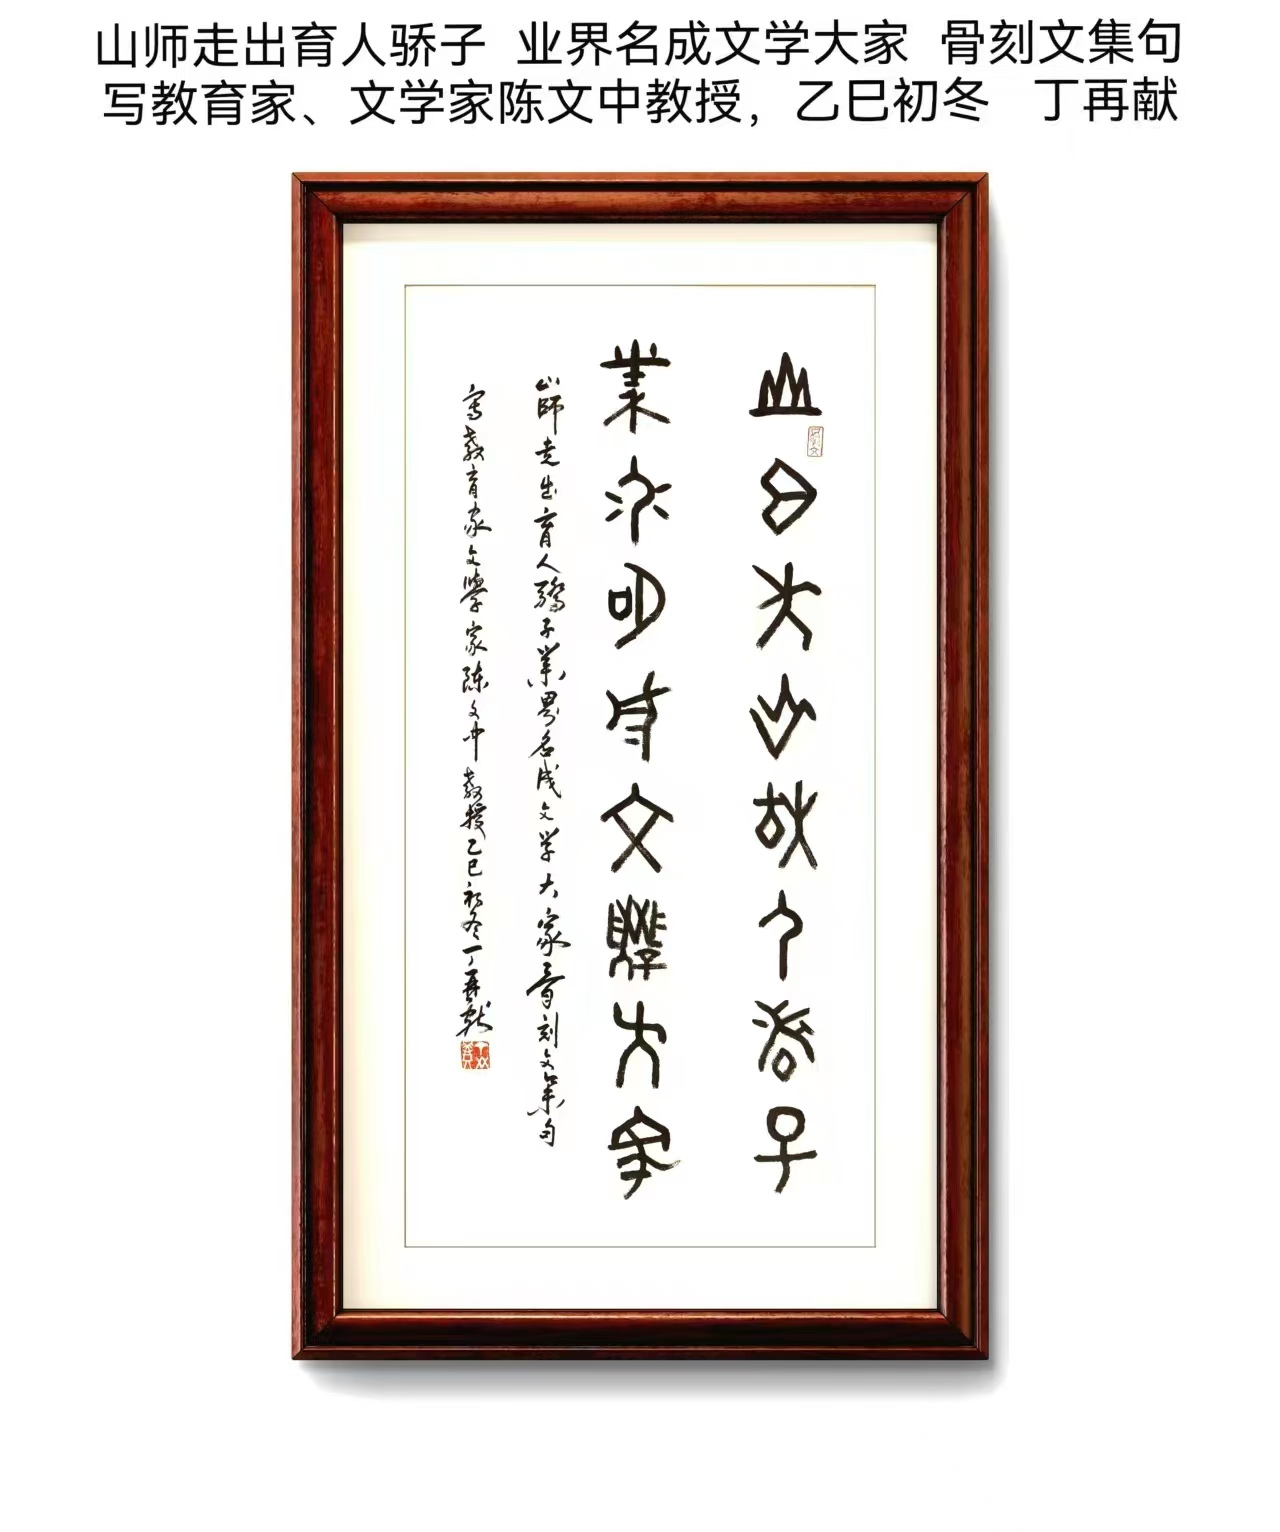 山师走出育人骄子 业界名成文学大家 骨刻文集句
写教育家、文学家陈文中教授，乙巳初冬 丁再献
山师走出育人骄子
業界名成文學大家
山師走出育人驕子業界名成文学大家骨刻文集句
寫教育家文學家陈文中教授乙巳初冬丁再献